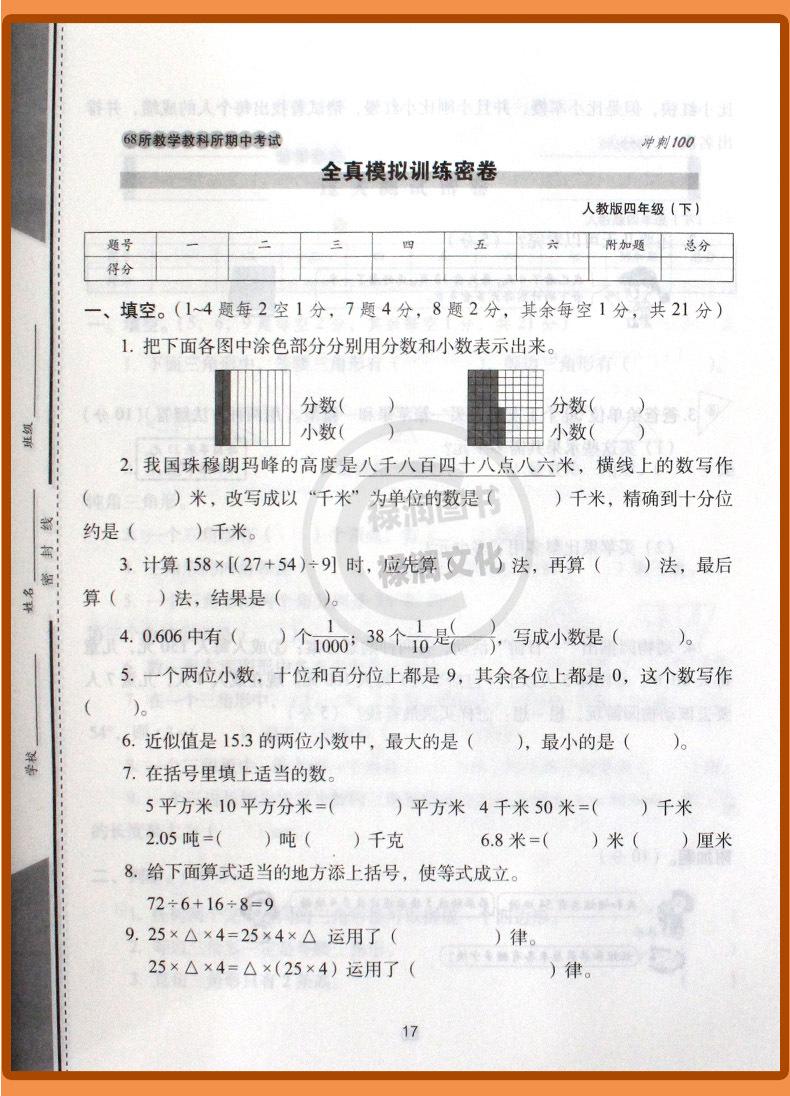 68所教学教科所期中考试
冲刺100
全真模拟训练密卷
人教版四年级（下）
题号 一 二 三 四 五 六 附加题 总分
得分
一、填空。（1~4题每2空1分，7题4分，8题2分，其余每空1分，共21分）
1. 把下面各图中涂色部分分别用分数和小数表示出来。
分数(　　) 分数(　　)
小数(　　) 小数(　　)
2. 我国珠穆朗玛峰的高度是八千八百四十八点八六米，横线上的数写作
(　　)米，改写成以“千米”为单位的数是(　　)千米，精确到十分位
约是(　　)千米。
3. 计算158×[(27+54)÷9]时，应先算(　　)法，再算(　　)法，最后
算(　　)法，结果是(　　)。
4. 0.606中有(　　)个1/1000；38个1/10是(　　)/(　　)，写成小数是(　　)。
5. 一个两位小数，十位和百分位上都是9，其余各位上都是0，这个数写作
(　　)。
6. 近似值是15.3的两位小数中，最大的是(　　)，最小的是(　　)。
7. 在括号里填上适当的数。
5平方米10平方分米=(　　)平方米 4千米50米=(　　)千米
2.05吨=(　　)吨(　　)千克 6.8米=(　　)米(　　)厘米
8. 给下面算式适当的地方添上括号，使等式成立。
72÷6+16÷8=9
9. 25×△×4=25×4×△ 运用了(　　)律。
25×△×4=△×(25×4) 运用了(　　)律。
17
班级
姓名
学校
密封线
禄润图书
禄润文化